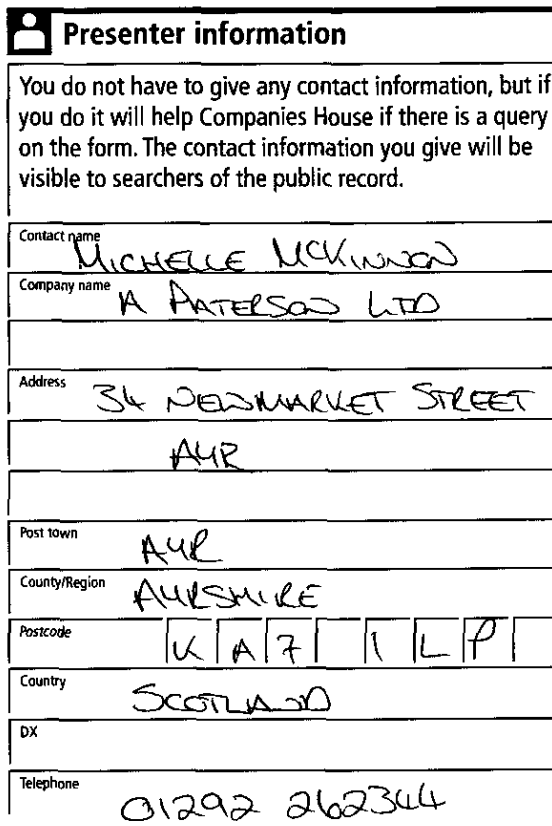 Presenter information
You do not have to give any contact information, but if
you do it will help Companies House if there is a query
on the form. The contact information you give will be
visible to searchers of the public record.
Contact name MICHELLE MCKINNON
Company name A PATERSON LTD
Address 34 NEWMARKET STREET
AYR
Post town AYR
County/Region AYRSHIRE
Postcode KA7 1LP
Country SCOTLAND
DX
Telephone 01292 262344